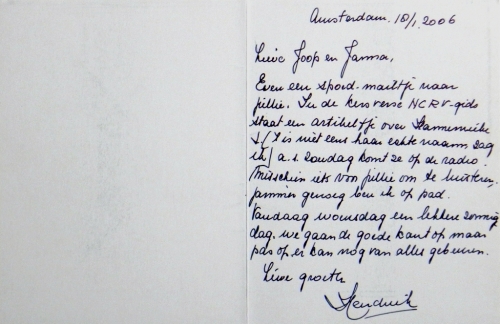 Amsterdam. 18/1. 2006
Lieve Joop en Janna,
Even een spoed-mailtje naar
jullie. In de kersverse NCRV-gids
staat een artikeltje over Hannemieke
S/('t is niet eens haar echte naam, zag
ik) a.s. zondag komt ze op de radio.
Misschien iets voor jullie om te luisteren,
jammer genoeg ben ik op pad.
Vandaag woensdag een lekkere zonnige
dag. we gaan de goede kant op maar
pas op er kan nog van alles gebeuren.
Lieve groeten
Hendrik